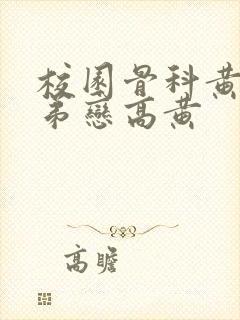 校園骨科黃
弟戀高黃
高瞻